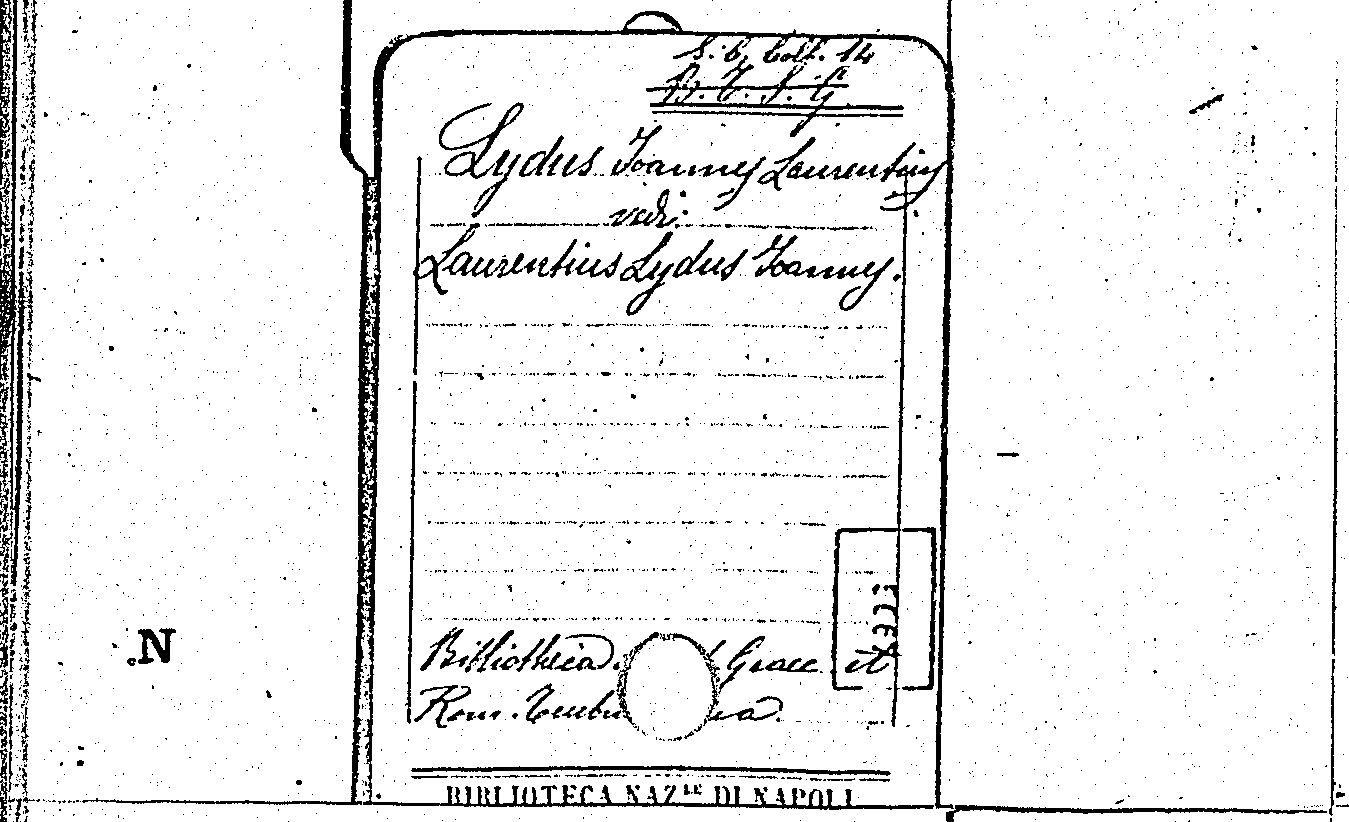 S. C. Coll. 14
B. T. S. G
Lydus Ioannes Laurentius
vedi:
Laurentius Lydus Ioannes.
Bibliotheca Graec. et
Rom. Teubn
BIBLIOTECA NAZLE DI NAPOLI
N